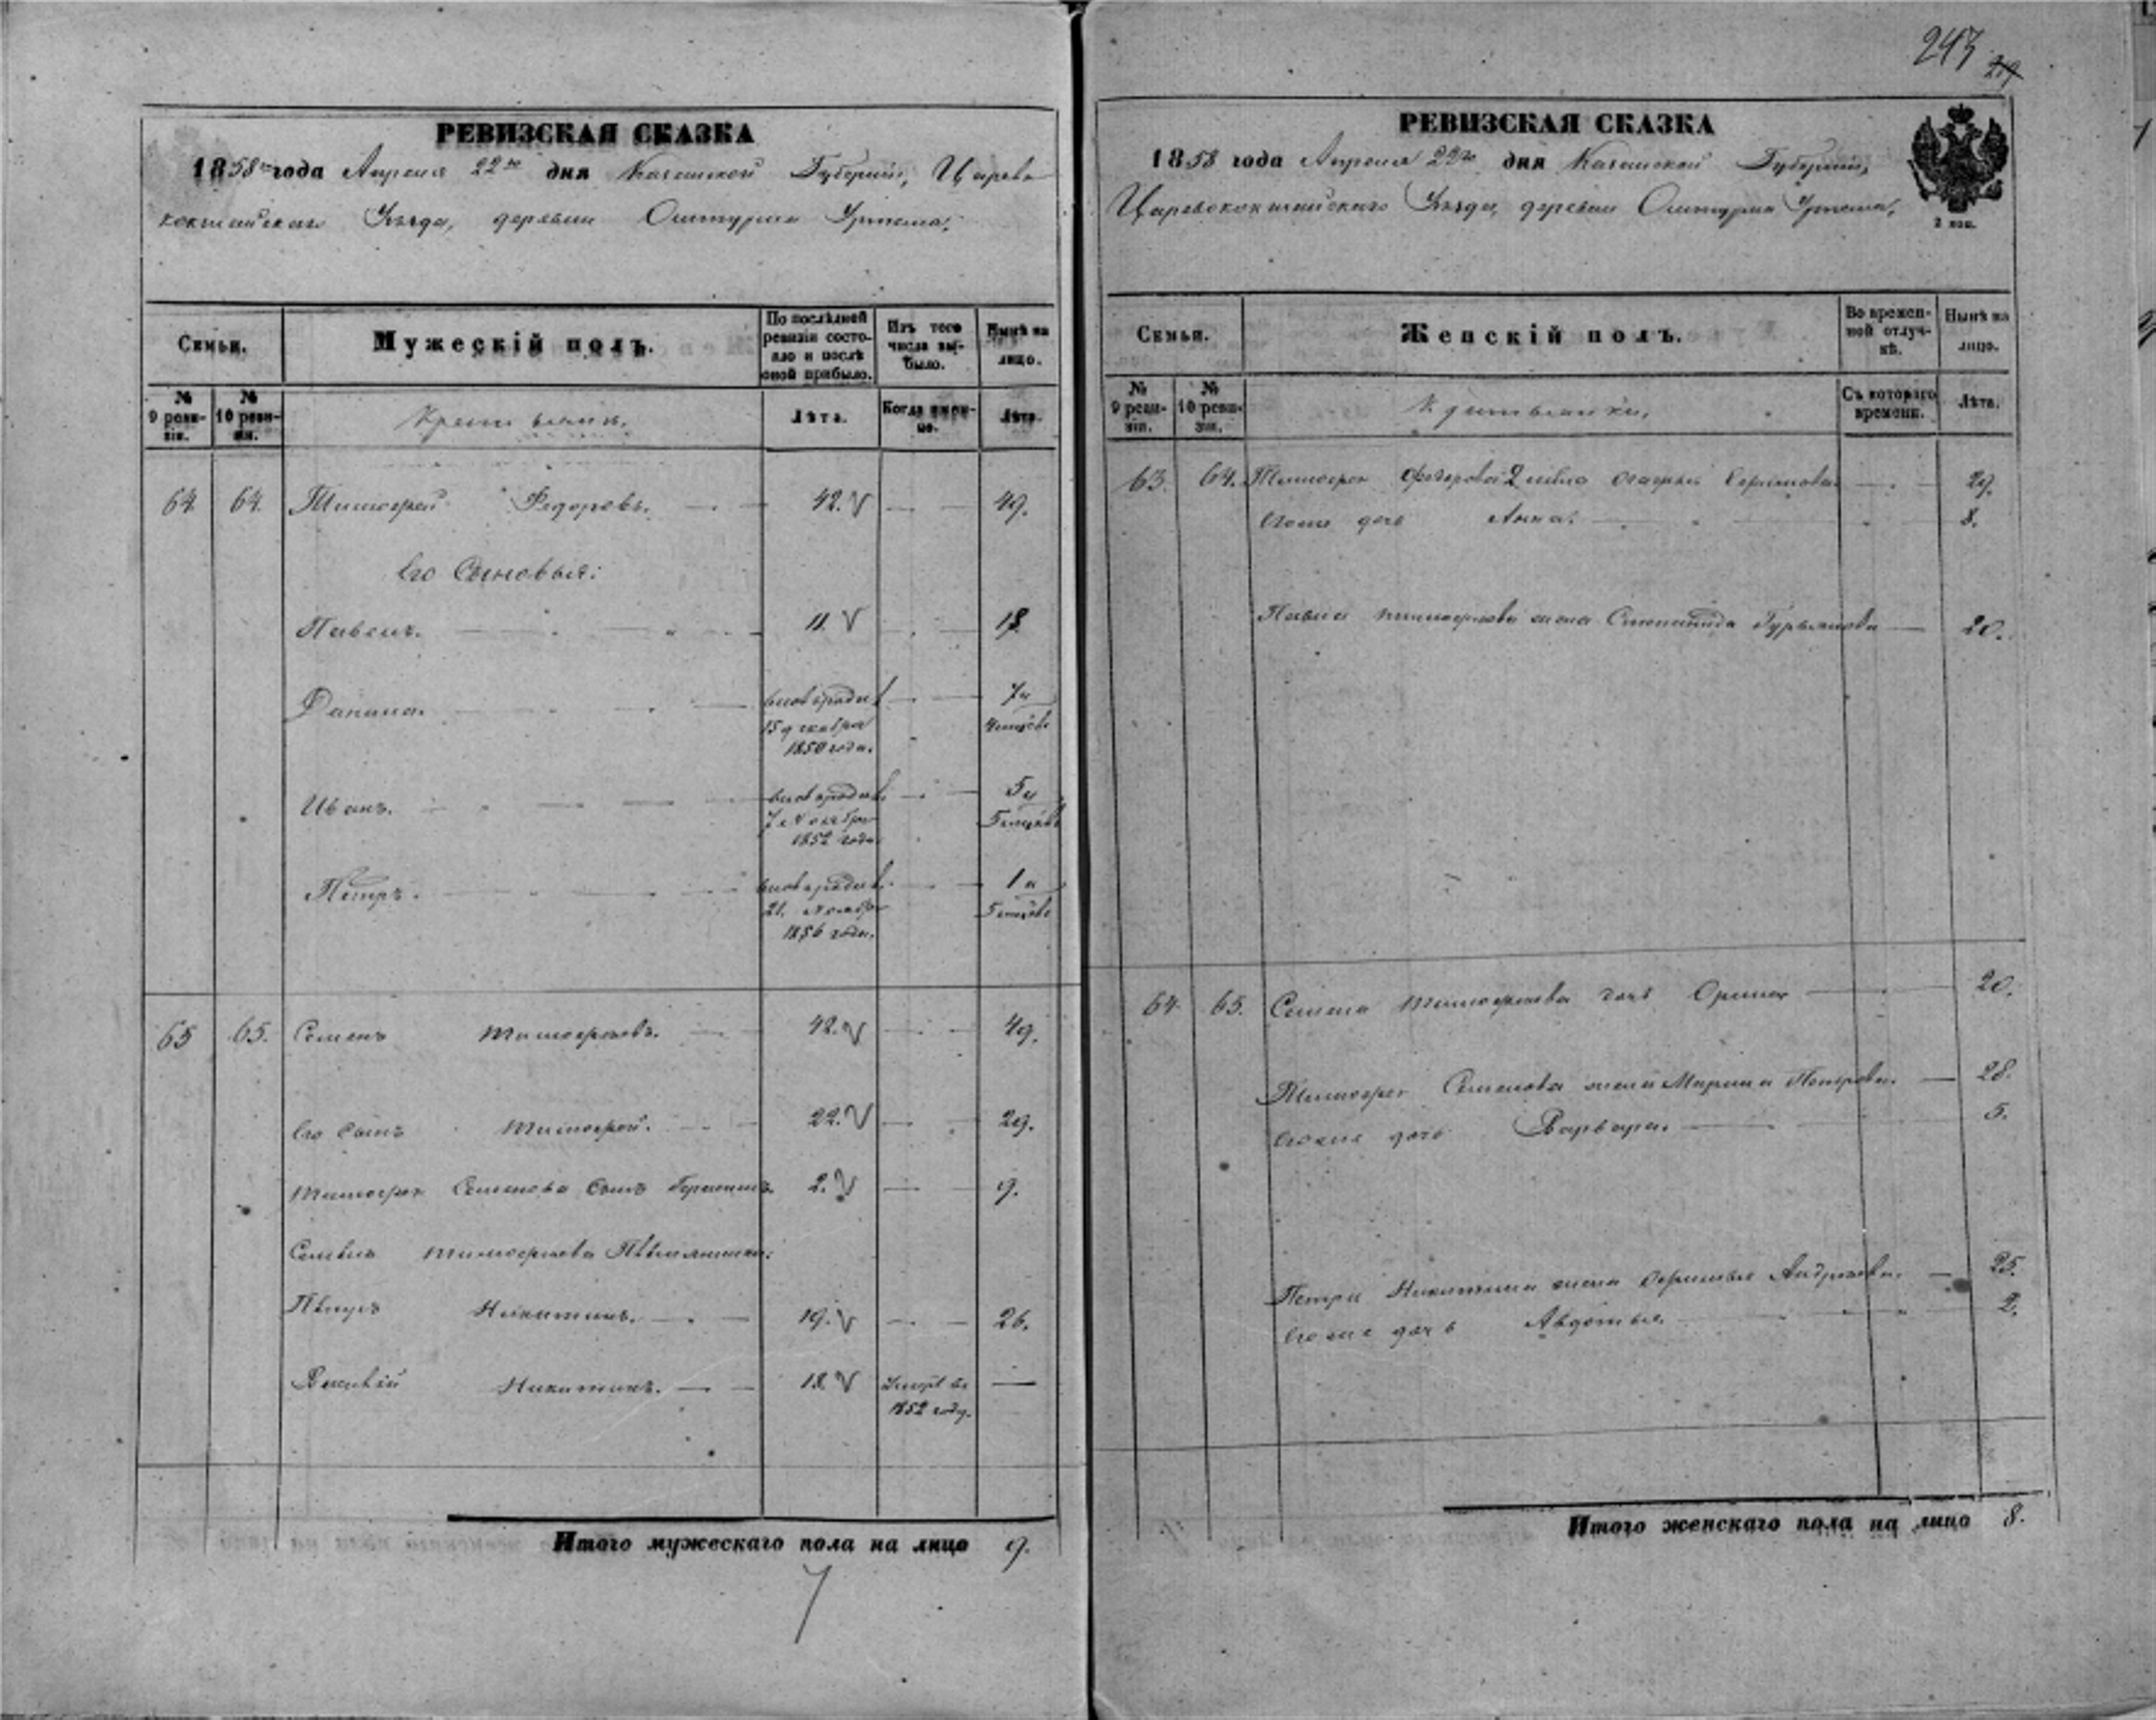 243
РЕВИЗСКАЯ СКАЗКА
1858 года Апреля 22го дня Казанской Губерніи, Царево
кокшайскаго Уѣзда, деревни Ошturма
Семьи.
Мужескій полъ.
По послѣдней ревизіи состояло и послѣ оной прибыло.
Изъ того числа выбыло.
Нынѣ на лицо.
№ 9 ревизіи.
№ 10 ревизіи.
Крестьяне.
Лѣта.
Когда именно.
Лѣта.
64. 64. Тимофей Федоровъ. 42. 49.
Его Сыновья:
Павелъ. 11. 18.
Данила. вновьрожд 15 декабря 1850 года. 7 и 4 месяцов
Иванъ. вновьрожд 7 Ноября 1852 года 5 и 5 месяцов
Петръ. вновьрожд 21. Ноября 1856 года. 1 и 5 месяцов
65 65. Семенъ Тимофеевъ. 42. 49.
Его Сынъ Тимофей. 22. 29.
Тимофея Семенова Сынъ 2. 9.
Семена Тимофеева Племянники:
Петръ Никитинъ. 19. 26.
Василій Никитинъ. 18. 1852 году.
Итого мужескаго пола на лицо 9.
7
РЕВИЗСКАЯ СКАЗКА
1858 года Апреля 22го дня Казанской Губерніи,
Царевококшайскаго Уѣзда, деревни
2 коп.
Семьи.
Женскій полъ.
Во временной отлучкѣ.
Нынѣ на лицо.
№ 9 ревизіи.
№ 10 ревизіи.
Съ котораго времени.
Лѣта.
63. 64. Тимофея Федорова 2 жена 29.
дочь Анна. 8.
Павла Тимофеева жена Гурьянова 20.
64 65. Семена Тимофеева дочь Орина 20.
Тимофея Семенова жена Марина Петрова. 28.
дочь Варвара. 5.
Петра Никитина жена Андреева. 25.
дочь Авдотья. 2.
Итого женскаго пола на лицо 8.